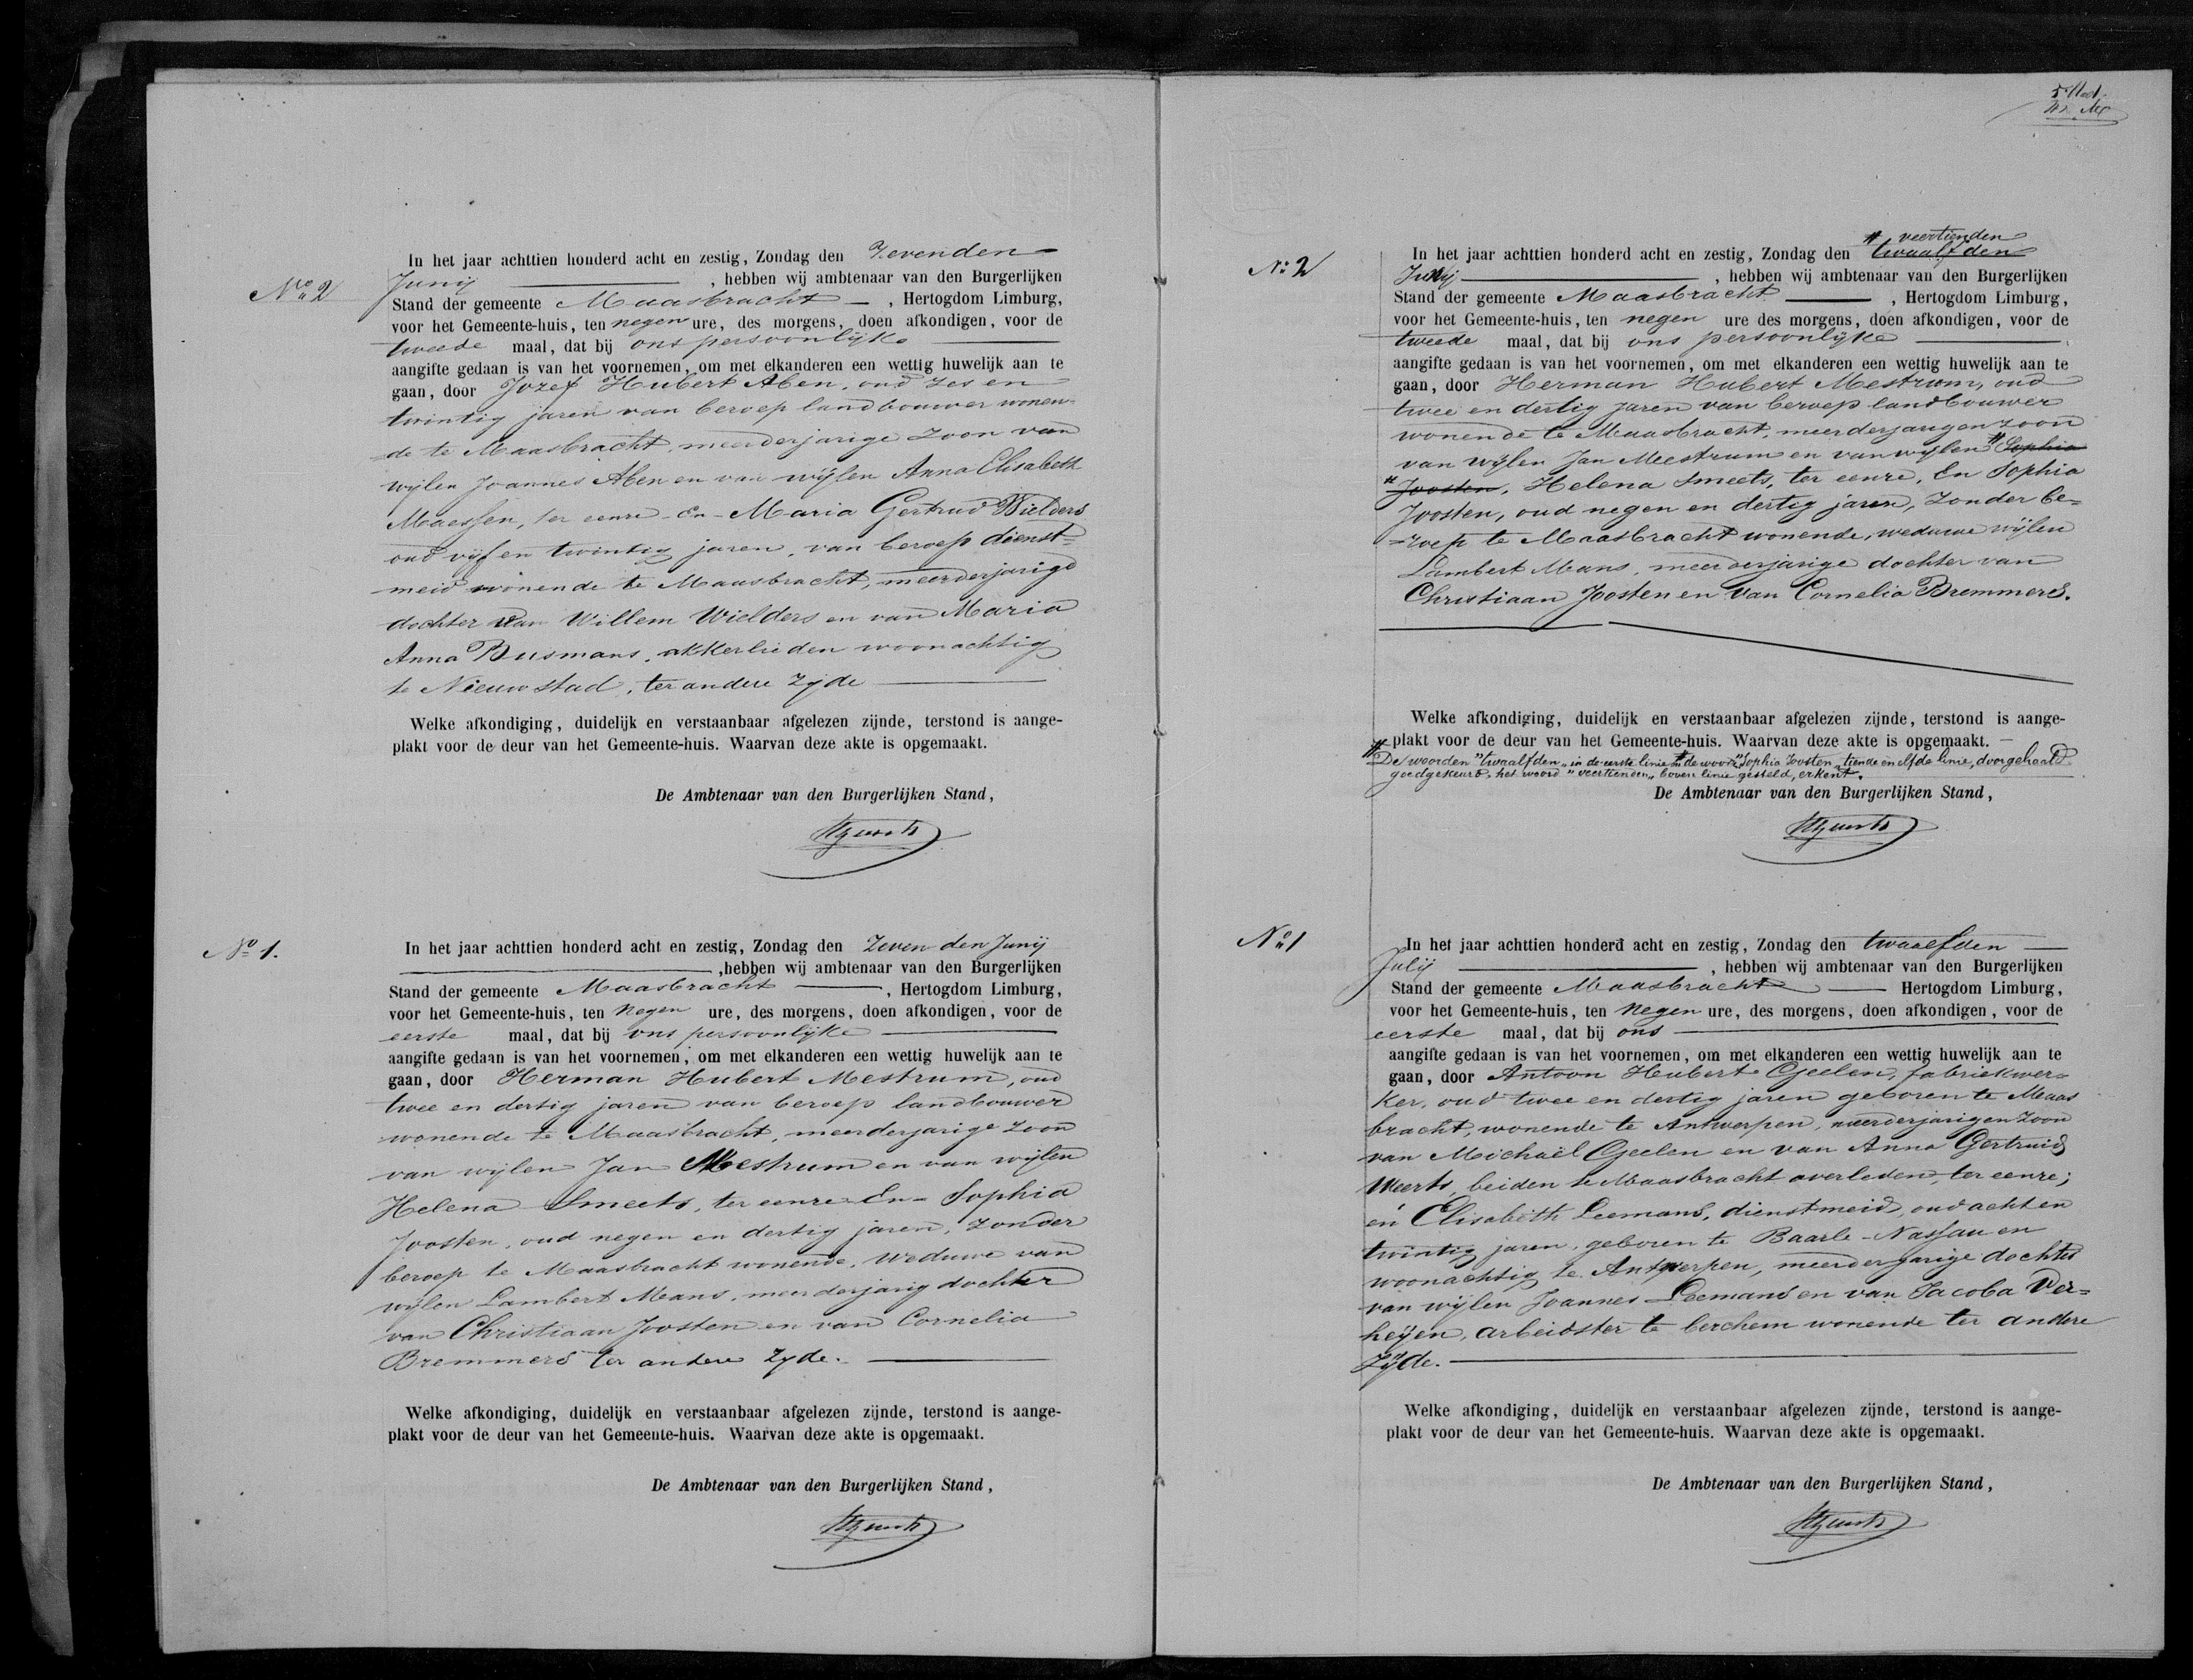 No 2
In het jaar achttien honderd acht en zestig, Zondag den Zevenden
Junij, hebben wij ambtenaar van den Burgerlijken
Stand der gemeente Maasbracht, Hertogdom Limburg,
voor het Gemeente-huis, ten negen ure, des morgens, doen afkondigen, voor de
tweede maal, dat bij ons persoonlijke
aangifte gedaan is van het voornemen, om met elkanderen een wettig huwelijk aan te
gaan, door Jozef Hubert Aben, oud zes en
twintig jaren van beroep landbouwer wonen-
de te Maasbracht, meerderjarige zoon van
wijlen Joannes Aben en van wijlen Anna Elisabeth
Maessen, ter eenre - En - Maria Gertrud Wielders
oud vijf en twintig jaren, van beroep dienst-
meid wonende te Maasbracht, meerderjarige
dochter van Willem Wielders en van Maria
Anna Busmans, akkerlieden woonachtig
te Nieuwstad, ter andere zijde
Welke afkondiging, duidelijk en verstaanbaar afgelezen zijnde, terstond is aange-
plakt voor de deur van het Gemeente-huis. Waarvan deze akte is opgemaakt.
De Ambtenaar van den Burgerlijken Stand,
No 1.
In het jaar achttien honderd acht en zestig, Zondag den Zevenden Junij
,hebben wij ambtenaar van den Burgerlijken
Stand der gemeente Maasbracht, Hertogdom Limburg,
voor het Gemeente-huis, ten negen ure, des morgens, doen afkondigen, voor de
eerste maal, dat bij ons persoonlijke
aangifte gedaan is van het voornemen, om met elkanderen een wettig huwelijk aan te
gaan, door Herman Hubert Mestrum, oud
twee en dertig jaren van beroep landbouwer
wonende te Maasbracht, meerderjarige zoon
van wijlen Jan Mestrum en van wijlen
Helena Smeets, ter eenre En - Sophia
Joosten, oud negen en dertig jaren, zonder
beroep te Maasbracht wonende, weduwe van
wijlen Lambert Mans, meerderjarig dochter
van Christiaan Joosten en van Cornelia
Bremmers ter andere zyde.
Welke afkondiging, duidelijk en verstaanbaar afgelezen zijnde, terstond is aange-
plakt voor de deur van het Gemeente-huis. Waarvan deze akte is opgemaakt.
De Ambtenaar van den Burgerlijken Stand,
No 2
# veertienden
In het jaar achttien honderd acht en zestig, Zondag den twaalfden
Junij, hebben wij ambtenaar van den Burgerlijken
Stand der gemeente Maasbracht, Hertogdom Limburg,
voor het Gemeente-huis, ten negen ure des morgens, doen afkondigen, voor de
tweede maal, dat bij ons persoonlijke
aangifte gedaan is van het voornemen, om met elkanderen een wettig huwelijk aan te
gaan, door Herman Hubert Mestrum, oud
twee en dertig jaren van beroep landbouwer
wonende te Maasbracht, meerderjarigen zoon
van wijlen Jan Meestrum en van wijlen # Sophia
# Joosten, Helena Smeets, ter eenre, En Sophia
Joosten, oud negen en dertig jaren, zonder be-
roep te Maasbracht wonende, weduwe wijlen
Lambert Mans, meerderjarige dochter van
Christiaan Joosten en van Cornelia Bremmers.
Welke afkondiging, duidelijk en verstaanbaar afgelezen zijnde, terstond is aange-
plakt voor de deur van het Gemeente-huis. Waarvan deze akte is opgemaakt.
# De woorden "twaalfden" in de eerste linie # de woord "Sophia Joosten" tiende en elfde linie, doorgehaald
goedgekeurd, het woord "veertienden" boven linie gesteld, erkent.
De Ambtenaar van den Burgerlijken Stand,
No 1
In het jaar achttien honderd acht en zestig, Zondag den twaalfden
Julij, hebben wij ambtenaar van den Burgerlijken
Stand der gemeente Maasbracht Hertogdom Limburg,
voor het Gemeente-huis, ten negen ure, des morgens, doen afkondigen, voor de
eerste maal, dat bij ons
aangifte gedaan is van het voornemen, om met elkanderen een wettig huwelijk aan te
gaan, door Antoon Hubert Geelen, fabriekwer-
ker, oud twee en dertig jaren geboren te Maas
bracht, wonende te Antwerpen, meerderjarigen zoon
van Michaël Geelen en van Anna Gertruid
Weerts, beiden te Maasbracht overleden, ter eenre;
en Elisabeth Leemans, dienstmeid, oud acht en
twintig jaren, geboren te Baarle-Nassau en
woonachtig te Antwerpen, meerderjarige dochter
van wijlen Joannes Leemans en van Jacoba Ver-
heijen, arbeidster te berchem wonende ter andere
zijde.
Welke afkondiging, duidelijk en verstaanbaar afgelezen zijnde, terstond is aange-
plakt voor de deur van het Gemeente-huis. Waarvan deze akte is opgemaakt.
De Ambtenaar van den Burgerlijken Stand,